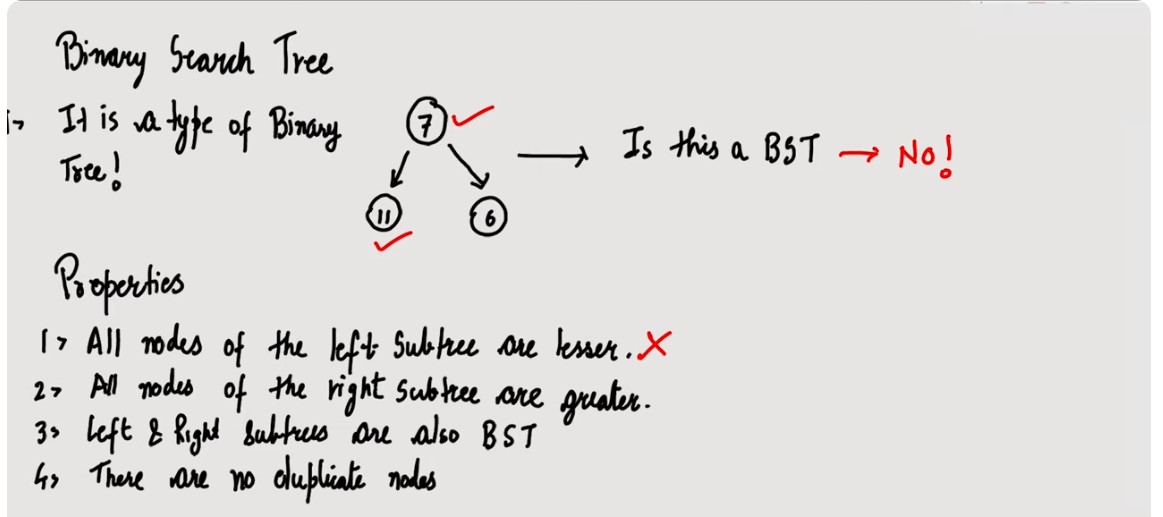 Binary Search Tree
1> It is a type of Binary
Tree!
7
11
6
Is this a BST → No!
Properties
1> All nodes of the left Subtree are lesser. ✗
2> All nodes of the right Subtree are greater.
3> Left & Right Subtrees are also BST
4> There are no duplicate nodes